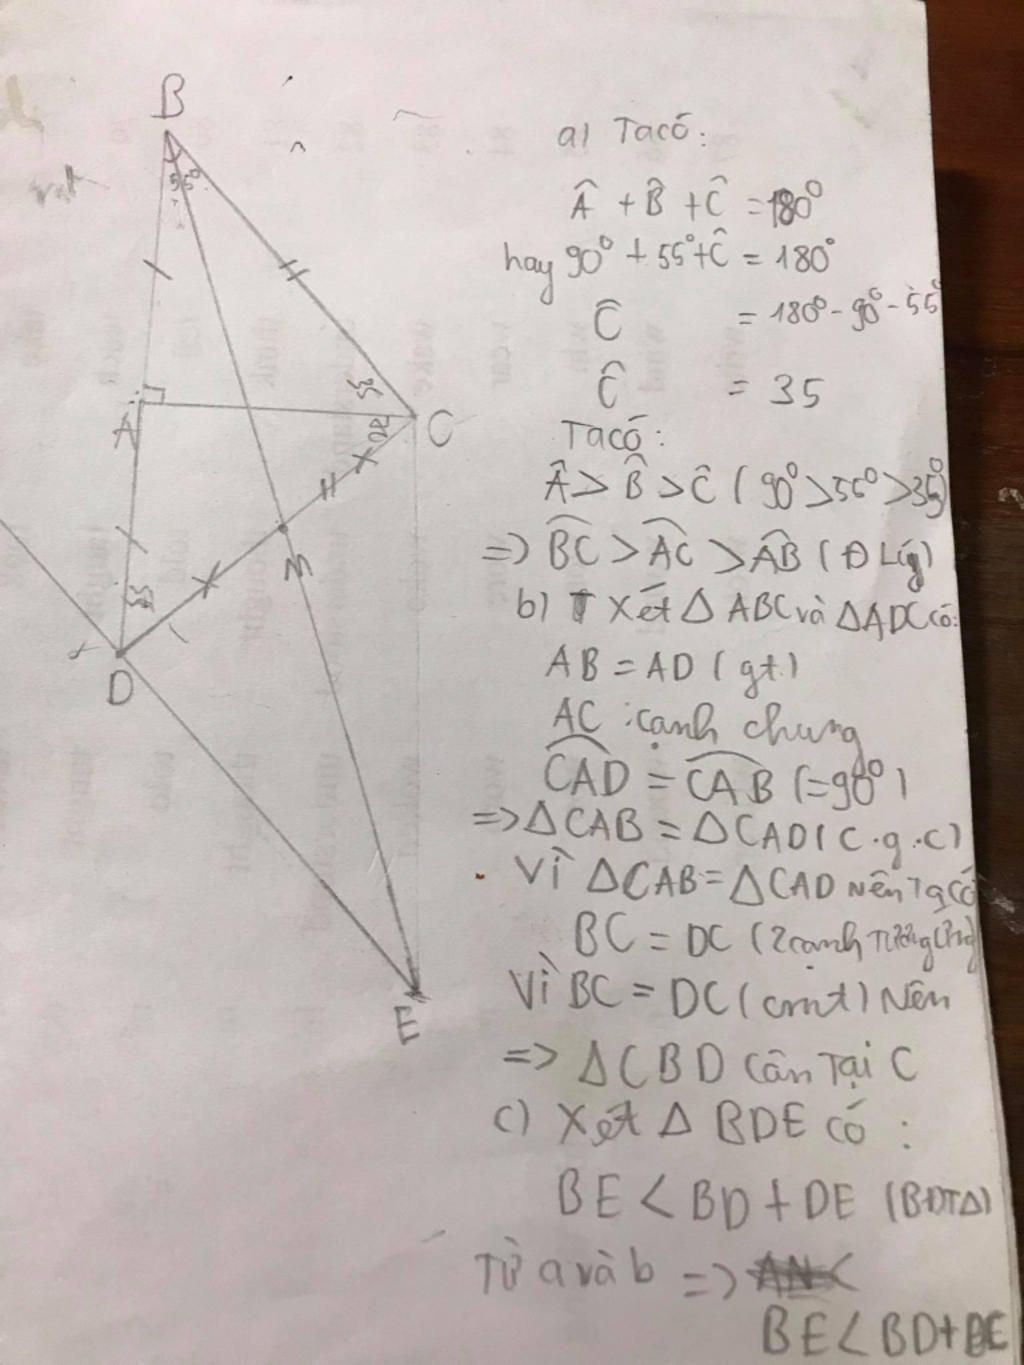 B
55°
A
C
M
D
E
a) Ta có:
Â + B̂ + Ĉ = 180°
hay 90° + 55° + Ĉ = 180°
Ĉ = 180° - 90° - 55°
Ĉ = 35
Ta có:
Â > B̂ > Ĉ ( 90° > 55° > 35°)
=> BC > AC > AB ( Đ Lí)
b) Xét Δ ABC và ΔADC có:
AB = AD ( gt )
AC : cạnh chung
CAD = CAB (=90°)
=> Δ CAB = Δ CAD ( c.g.c)
Vì ΔCAB = ΔCAD nên Ta có
BC = DC ( 2 cạnh Tương ứng)
Vì BC = DC ( cmt ) Nên
=> Δ CBD Cân Tại C
c) Xét Δ BDE có :
BE < BD + DE (BĐTΔ)
Từ a và b => AN <
BE < BD + DE